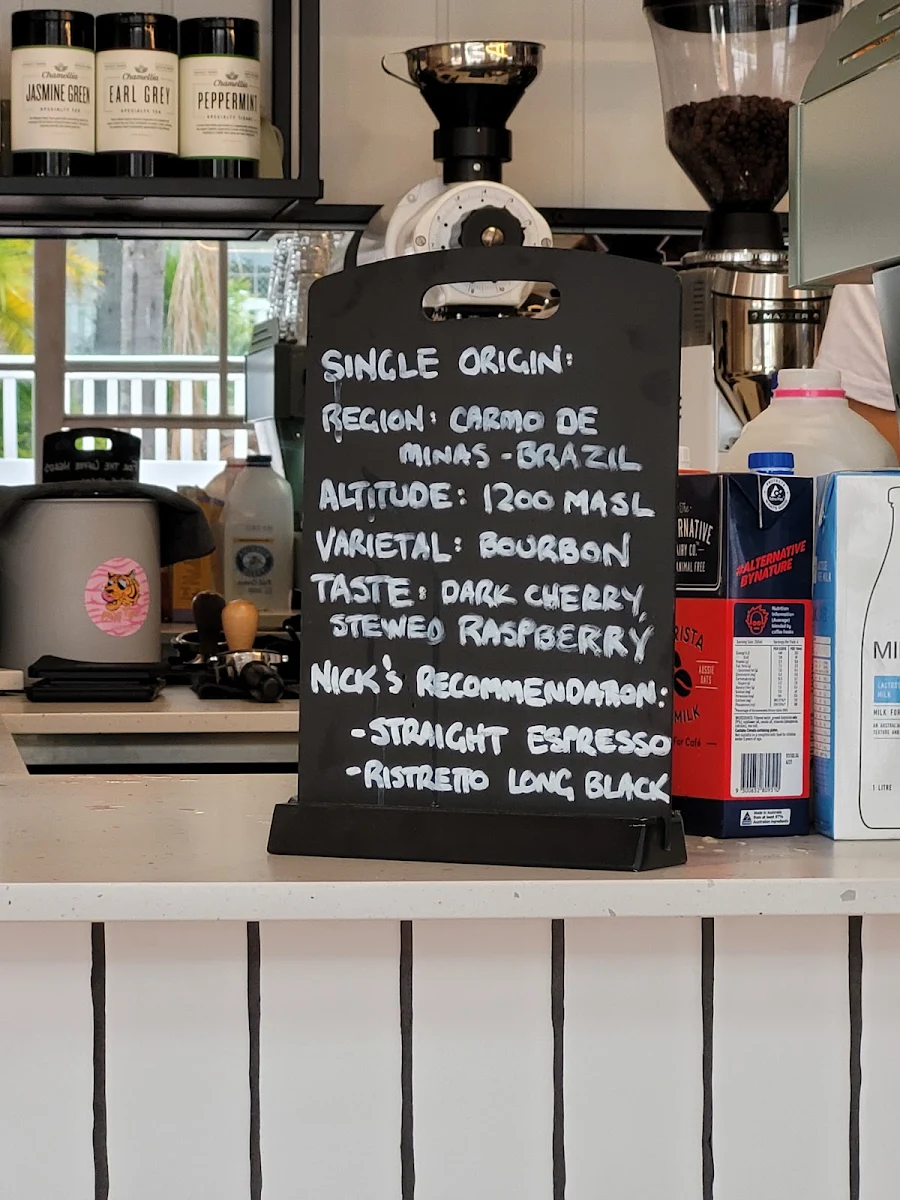 Chamellia
JASMINE GREEN
SPECIALTY TEA
Chamellia
EARL GREY
SPECIALTY TEA
Chamellia
PEPPERMINT
MAZZER
SINGLE ORIGIN:
REGION: CARMO DE
MINAS - BRAZIL
ALTITUDE: 1200 MASL
VARIETAL: BOURBON
TASTE: DARK CHERRY,
STEWED RASPBERRY
NICK'S RECOMMENDATION:
- STRAIGHT ESPRESSO
- RISTRETTO LONG BLACK
RNATIVE
IRY CO.
ANIMAL FREE
#ALTERNATIVE
BYNATURE
Nutrition
Information
RISTA
AUSSIE
OATS
MILK
For Café
Made in Australia
MI
LACTOS
MILK
MILK FOR
1 LITRE